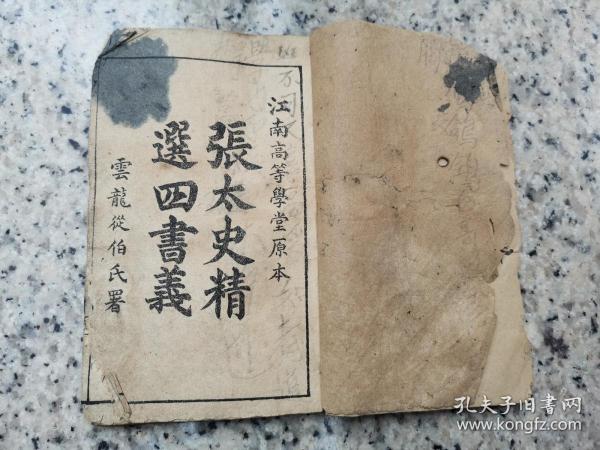 江南高等學堂原本
張太史精
選四書義
雲龍從伯氏署
孔夫子旧书网
www.kongfz.com